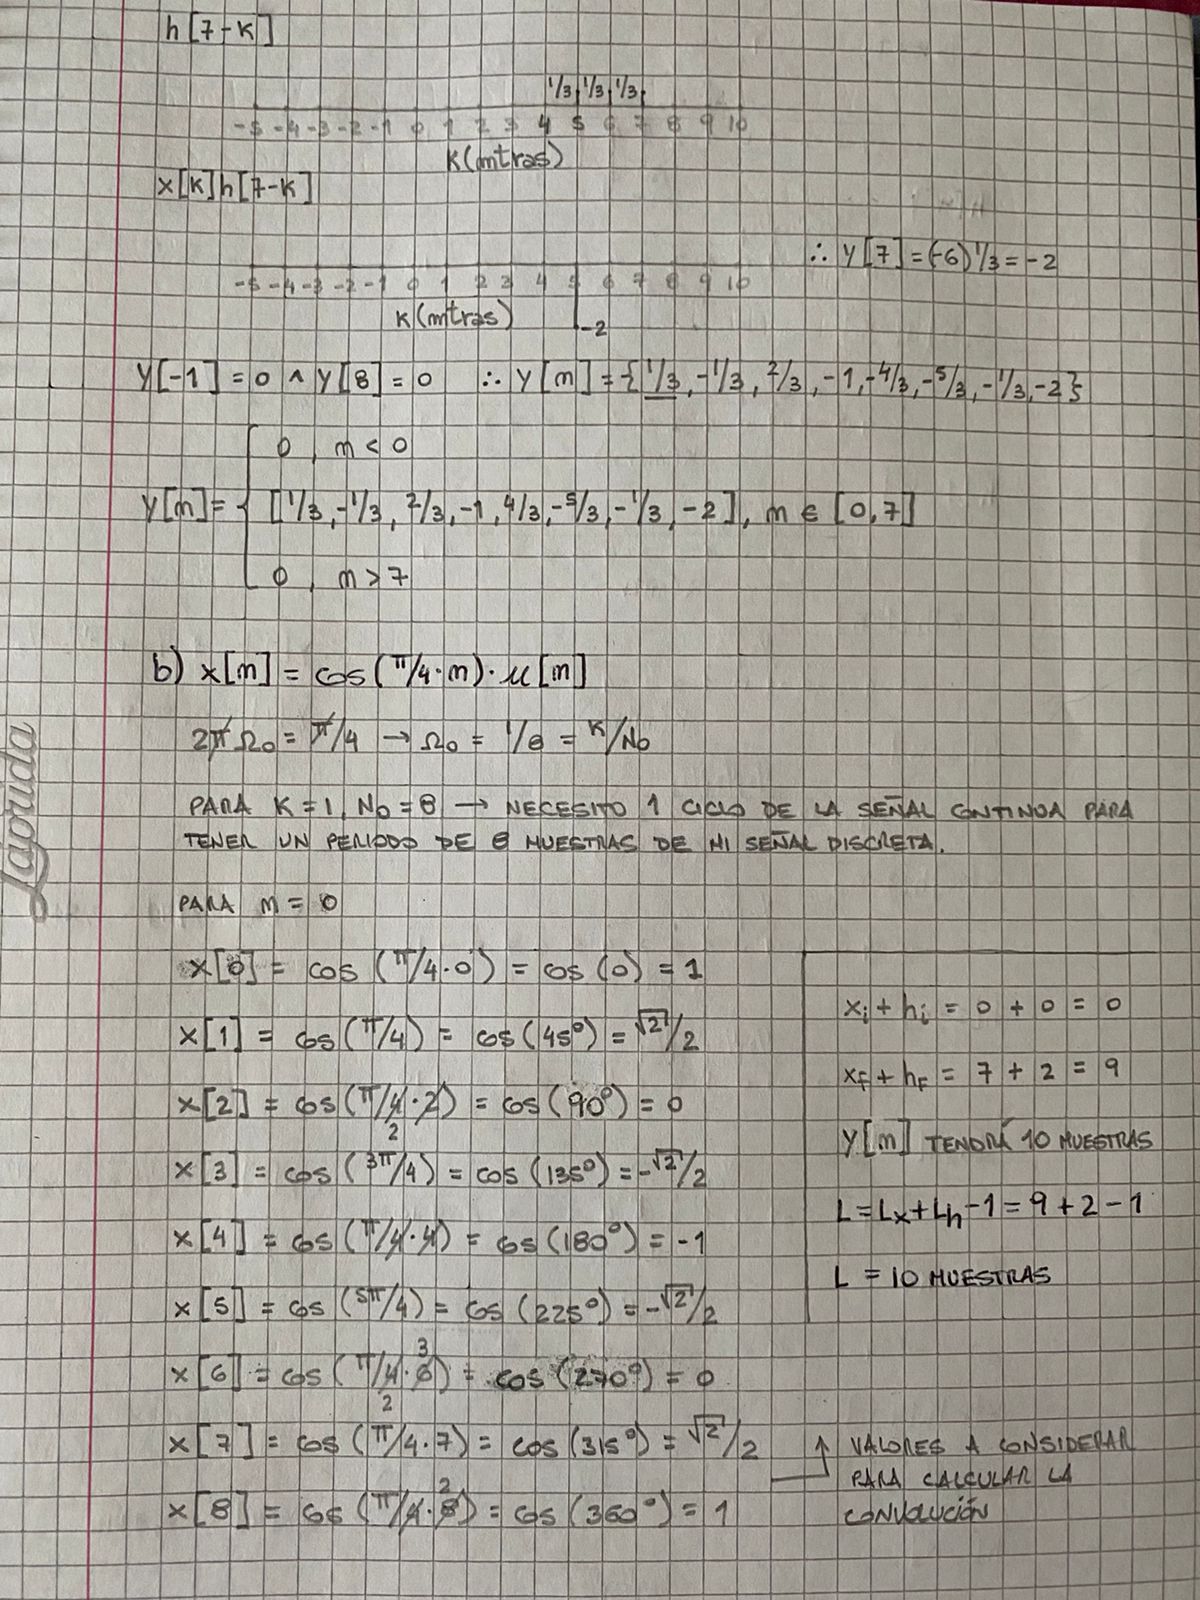 h[7-k]
1/3 1/3 1/3
-5 -4 -3 -2 -1 0 1 2 3 4 5 6 7 8 9 10
k(mtras)
x[k]h[7-k]
∴ y[7] = (-6) 1/3 = -2
-5 -4 -3 -2 -1 0 1 2 3 4 5 6 7 8 9 10
k(mtras)
-2
y[-1] = 0 ∧ y[8] = 0 ∴ y[m] = {1/3, -1/3, 2/3, -1, -4/3, -5/3, -1/3, -2}
0, m < 0
y[m] = [1/3, -1/3, 2/3, -1, 4/3, -5/3, -1/3, -2], m ∈ [0,7]
0, m > 7
b) x[m] = cos(π/4·m)·u[m]
2π Ω₀ = π/4 → Ω₀ = 1/8 = K/N₀
PARA K=1, N₀=8 → NECESITO 1 CICLO DE LA SEÑAL CONTINUA PARA
TENER UN PERIODO DE 8 MUESTRAS DE MI SEÑAL DISCRETA.
PARA m = 0
x[0] = cos(π/4·0) = cos(0) = 1
x[1] = cos(π/4) = cos(45°) = √2/2
x[2] = cos(π/4·2) = cos(90°) = 0
2
x[3] = cos(3π/4) = cos(135°) = -√2/2
x[4] = cos(π/4·4) = cos(180°) = -1
x[5] = cos(5π/4) = cos(225°) = -√2/2
3
x[6] = cos(π/4·6) = cos(270°) = 0
2
x[7] = cos(π/4·7) = cos(315°) = √2/2
2
x[8] = cos(π/4·8) = cos(360°) = 1
xi + hi = 0 + 0 = 0
xF + hF = 7 + 2 = 9
y[m] TENDRÁ 10 MUESTRAS
L = Lx + Lh - 1 = 9 + 2 - 1
L = 10 MUESTRAS
VALORES A CONSIDERAR
PARA CALCULAR LA
CONVOLUCIÓN
Laprida